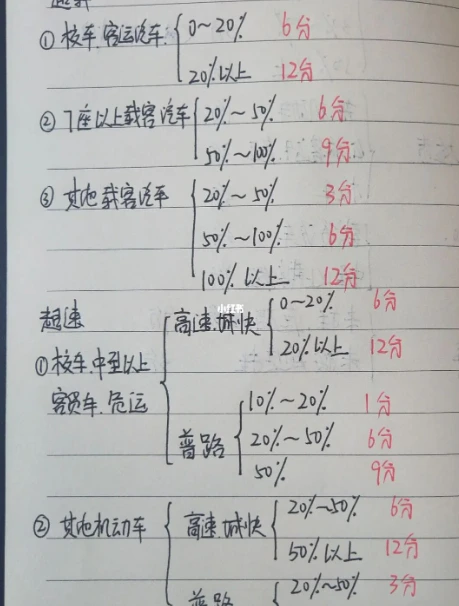 ① 校车.客运汽车. 0~20% 6分
20%以上 12分
② 7座以上载客汽车 20%~50% 6分
50%~100% 9分
③ 其他载客汽车 20%~50% 3分
50%~100% 6分
100%以上 12分
小红书
超速
①校车.中型以上客货车.危运
高速.城快 0~20% 6分
20%以上 12分
普路 10%~20% 1分
20%~50% 6分
50% 9分
② 其他机动车
高速.城快 20%~50% 6分
50%以上 12分
普路 20%~50% 3分